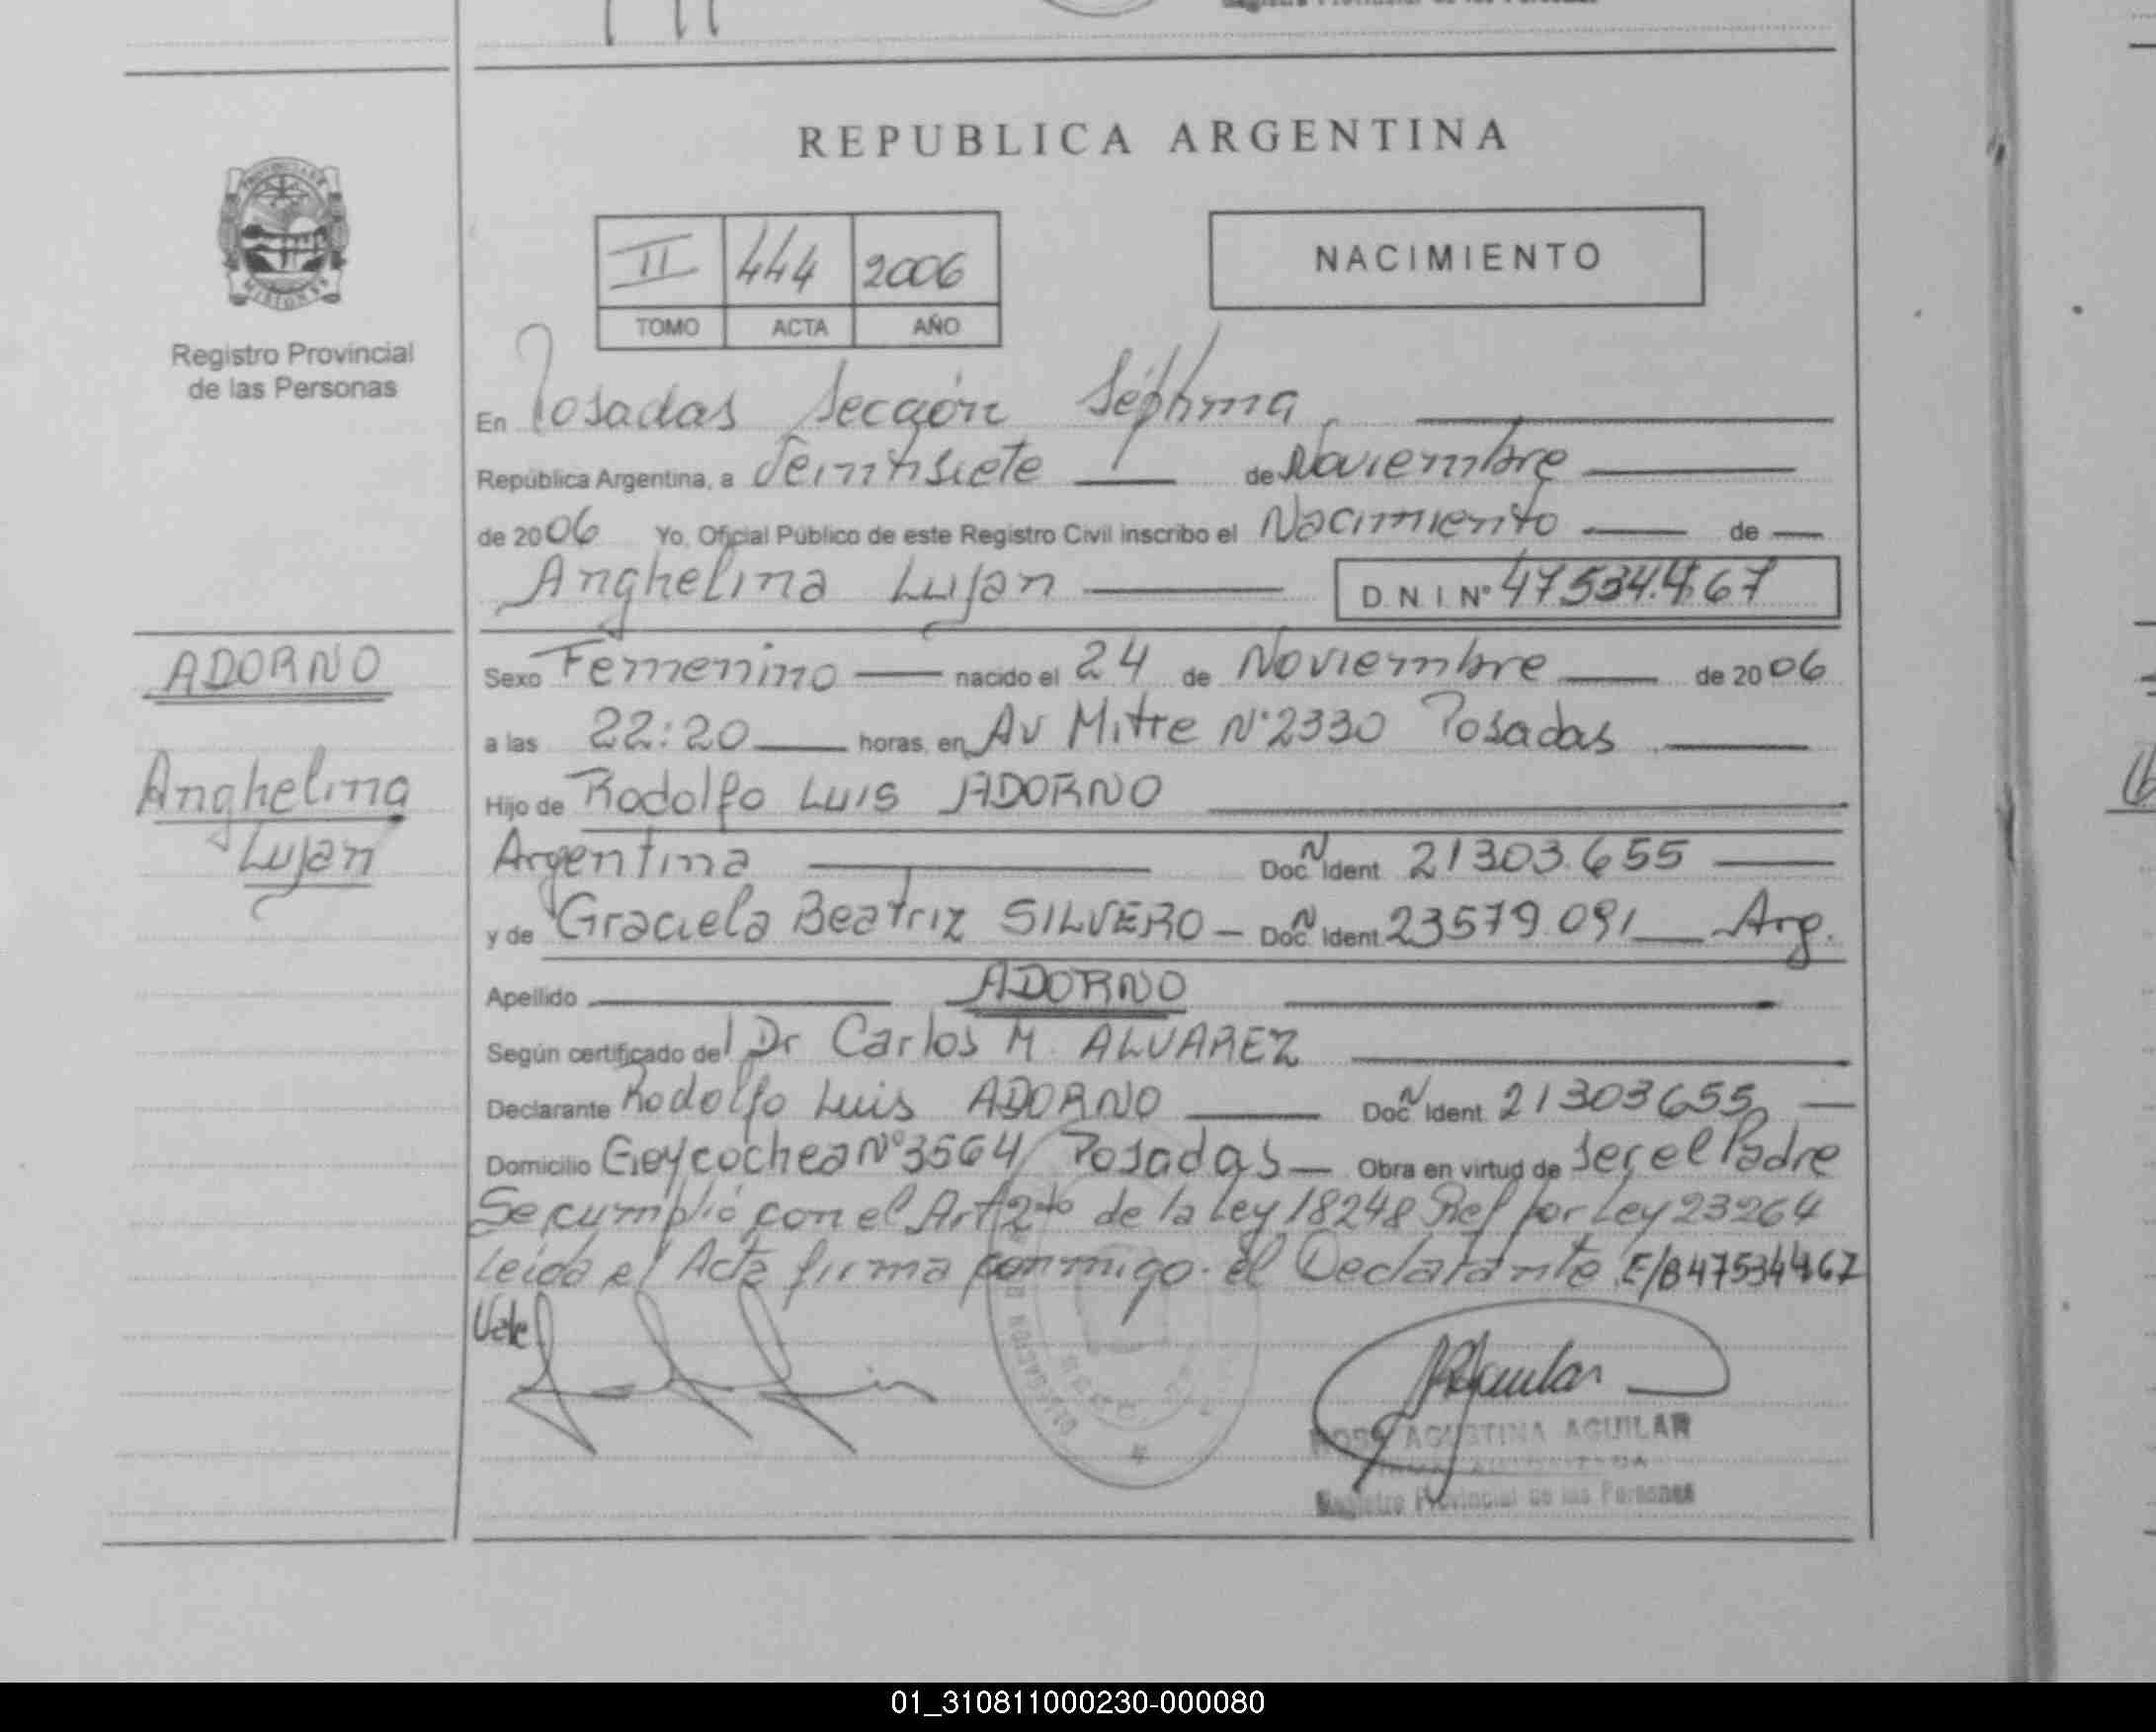 REPUBLICA ARGENTINA
II 444 2006
TOMO ACTA AÑO
NACIMIENTO
Registro Provincial
de las Personas
En Posadas Sección Séptima
República Argentina, a Veintisiete de Noviembre
de 2006 Yo, Oficial Público de este Registro Civil inscribo el Nacimiento de
Anghelina Lujan D N I Nº 47534.467
ADORNO
Anghelina
Lujan
Sexo Femenino nacido el 24 de Noviembre de 2006
a las 22:20 horas, en Av Mitre Nº 2330 Posadas
Hijo de Rodolfo Luis ADORNO
Argentina Doc N Ident. 21303.655
y de Graciela Beatriz SILVERO - Doc N Ident. 23579.091 Arg.
Apellido ADORNO
Según certificado del Dr Carlos M. ALVAREZ
Declarante Rodolfo Luis ADORNO Doc N Ident. 21303655
Domicilio Goycochea Nº 3564 Posadas Obra en virtud de ser el Padre
Se cumplió con el Art 2do de la Ley 18248 Ref por Ley 23264
Leída el Acta firma conmigo el Declarante E/B 47534467
Vale
ROSA AGUSTINA AGUILAR
Registro Provincial de las Personas
01_310811000230-000080